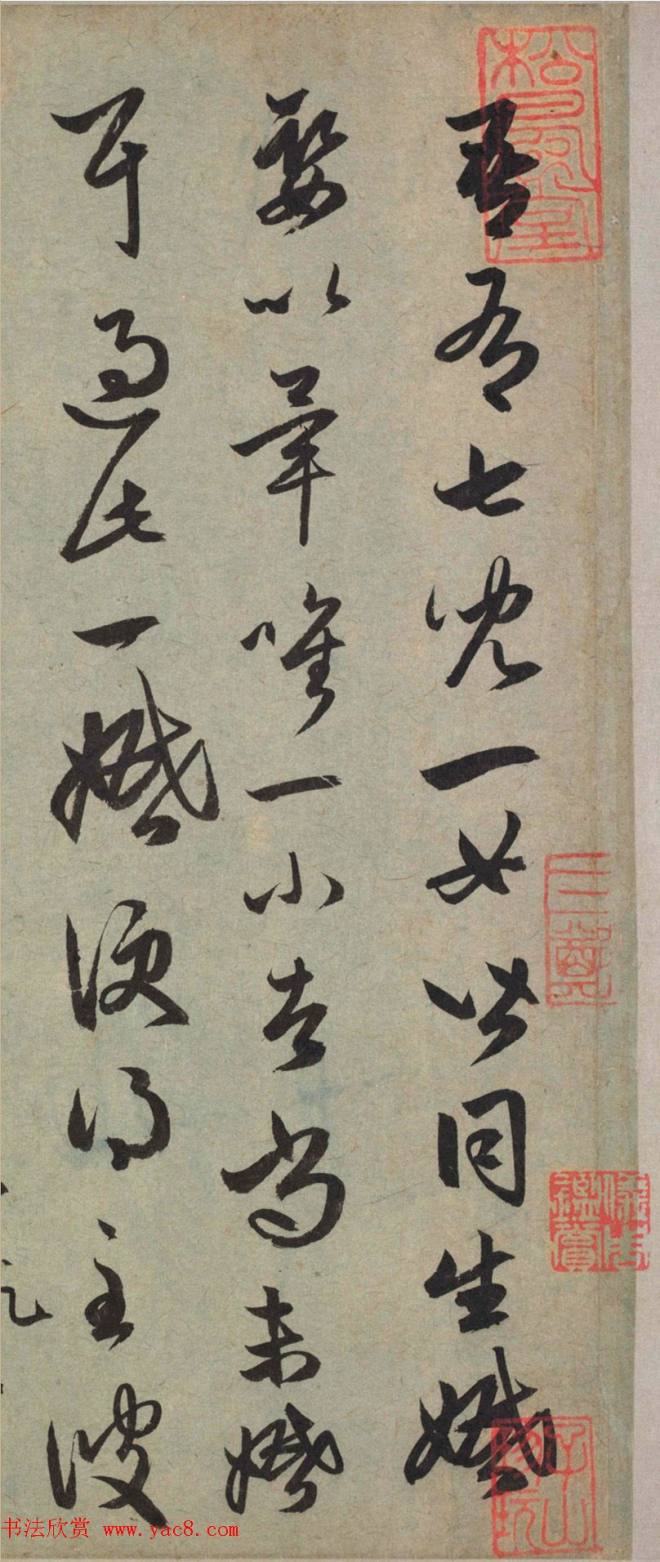 吾有七兒一女皆同生婚
娶以畢唯一小者尚未婚
耳過此一婚便得至彼
书法欣赏 www.yac8.com